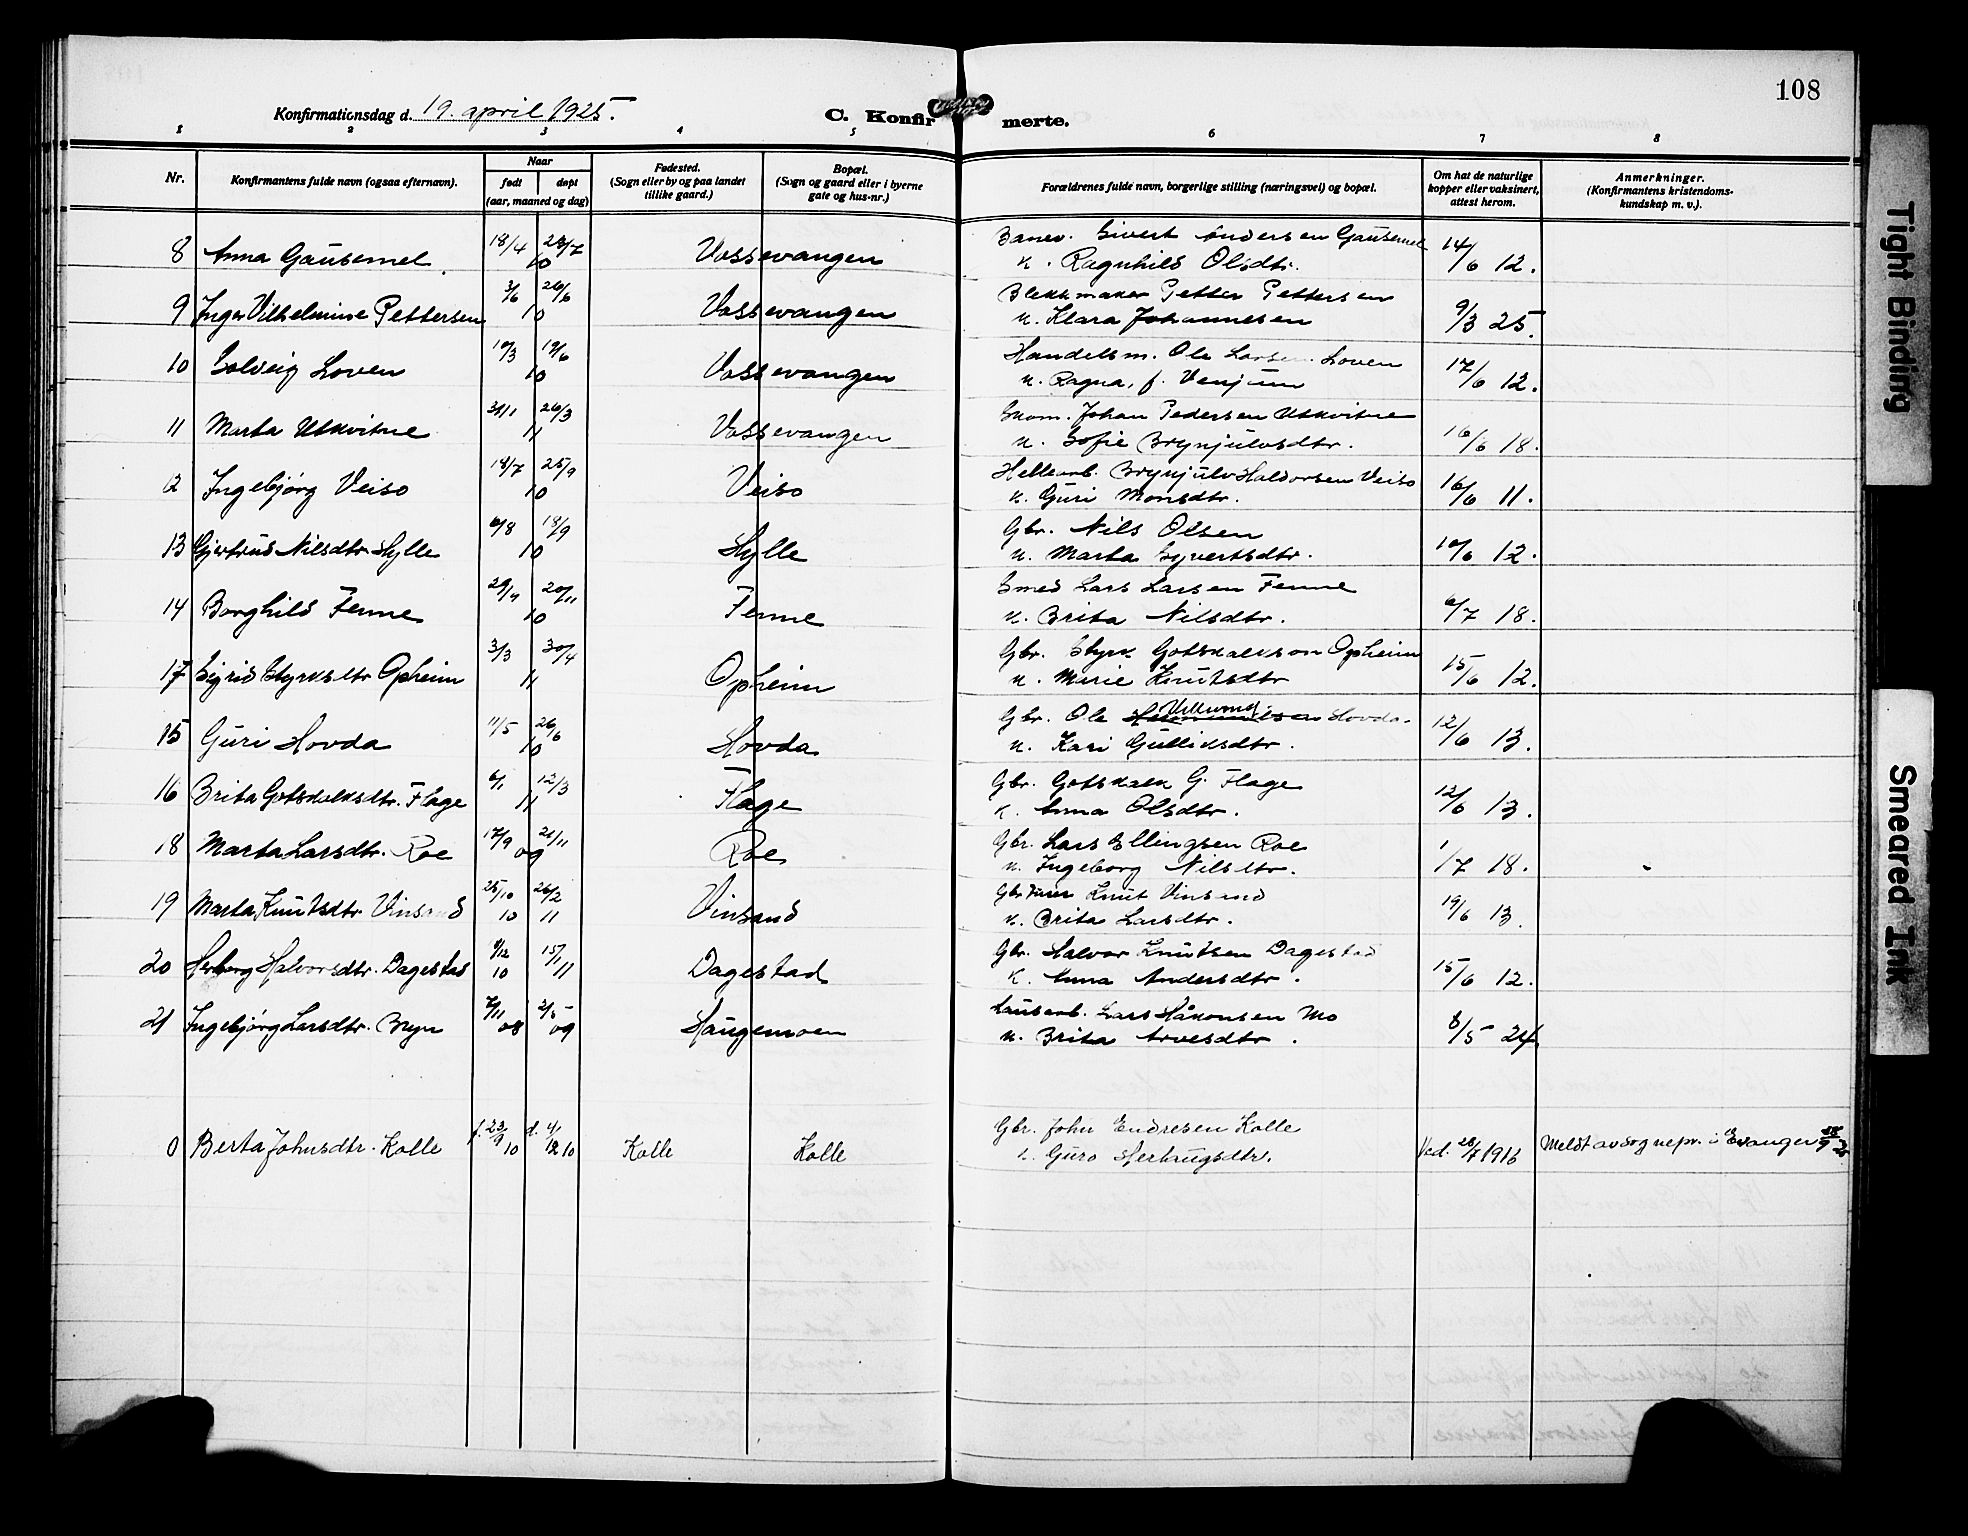 108
Konfirmationsdag d. 19. april 1925.
C. Konfirmerte.
1 2 3 4 5 6 7 8
Nr.
Konfirmantens fulde navn (ogsaa efternavn).
Naar
født
døpt
(aar, maaned og dag)
Fødested.
(Sogn eller by og paa landet
tillike gaard.)
Bopæl.
(Sogn og gaard eller i byerne
gate og hus-nr.)
Forældrenes fulde navn, borgerlige stilling (næringsvei) og bopæl.
Om hat de naturlige
kopper eller vaksinert,
attest herom.
Anmerkninger.
(Konfirmantens kristendoms-
kundskap m. v.).
8 Anna Gausemel 18/4 28/7 10 Vossevangen Banev. Sivert Andersen Gausemel 14/6 12.
K. Ragnhild Olsdtr.
9 Inger Vilhelmine Pettersen 3/6 26/6 10 Vossevangen Blekkmaker Petter Pettersen 9/3 25.
K. Klara Johannesen
10 Solveig Loven 10/3 19/6 10 Vossevangen Handelsm. Ole Larsen Loven 17/6 12.
K. Ragna, f. Venjum
11 Marta Utkvitne 31/1 26/3 11 Vossevangen Skom. Johan Pedersen Utkvitne 16/6 18.
K. Sofie Brynjulvsdtr.
12 Ingebjørg Veiso 18/7 25/9 10 Veiso Hellearb. Brynjulv Haldorsen Veiso 16/6 11.
K. Guri Monsdtr.
13 Gjertrud Nilsdtr Hylle 6/8 18/9 10 Hylle Gbr. Nils Olsen 10/6 12.
K. Marta Syvertsdtr.
14 Borghild Fenne 29/9 20/11 10 Fenne Smed Lars Larsen Fenne 6/7 18.
K. Brita Nilsdtr.
17 Sigrid Styrksdtr Opheim 3/3 30/4 11 Opheim Gbr. Styrk Gotskalkson Opheim 15/6 12.
K. Marie Knutsdtr
15 Guri Hovda 11/5 26/6 10 Hovda Gbr. Ole Hovda. 12/6 13.
K. Kari Gulliksdtr.
16 Brita Gotskalksdtr. Flage 6/1 12/3 11 Flage Gbr. Gotskalk G. Flage 12/6 13.
K. Anna Olsdtr.
18 Marta Larsdtr. Roe 17/9 21/11 09 Roe Gbr. Lars Ellingsen Roe 1/7 18.
K. Ingeborg Nilsdtr.
19 Marta Knutsdtr Vinsand 25/10 10 26/2 11 Vinsand Knut Vinsand 19/6 13.
K. Brita Larsdtr.
20 Herborg Halvorsdtr. Dagestad 9/12 10 15/1 11 Dagestad Gbr. Halvor Knutsen Dagestad 15/6 12.
K. Anna Andersdtr.
21 Ingebjørg Larsdtr. Bryn 7/11 08 2/5 09 Haugemoen Lausarb. Lars Håkonsen Mo 8/5 24.
K. Brita Arvesdtr.
0 Berta Johnsdtr. Kolle f. 23/9 10 d. 4/12 10 Kolle Kolle Gbr. John Endresen Kolle Vacl. 28/7 1916 Meldt av sognepr. i Evanger
k. Guro Herbrugsdtr.
Tight Binding
Smeared Ink